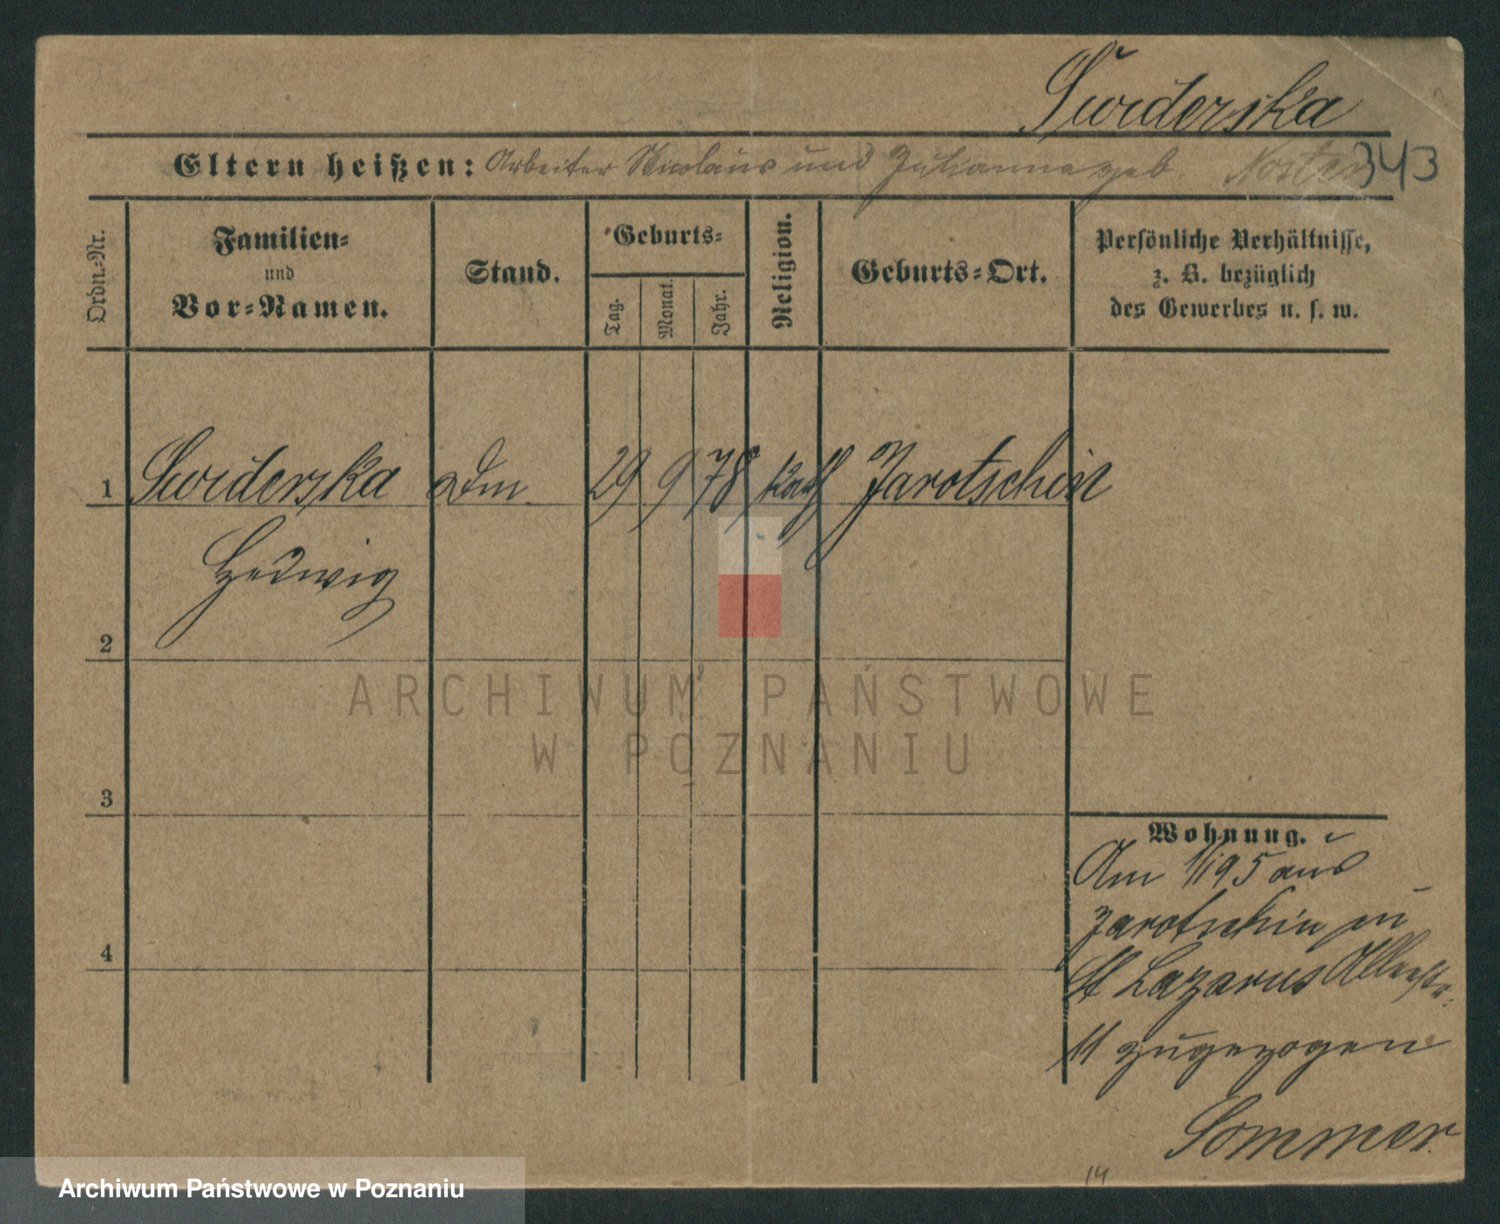 Swiderska
Eltern heißen: Arbeiter Nicolaus und Julianna geb.
343
Ordn.-Nr.
Familien-
und
Vor-Namen.
Stand.
Geburts-
Tag.
Monat.
Jahr.
Religion.
Geburts-Ort.
Persönliche Verhältnisse,
z. B. bezüglich
des Gewerbes u. s. w.
1 Swiderska Dm 29 9 78 kath Jarotschin
Hedwig
2
3
4
Wohnung.
Am 1/1 95 aus
Jarotschin in
St Lazarus
11 zugezogen
Sommer
14
ARCHIWUM PAŃSTWOWE
W POZNANIU
Archiwum Państwowe w Poznaniu